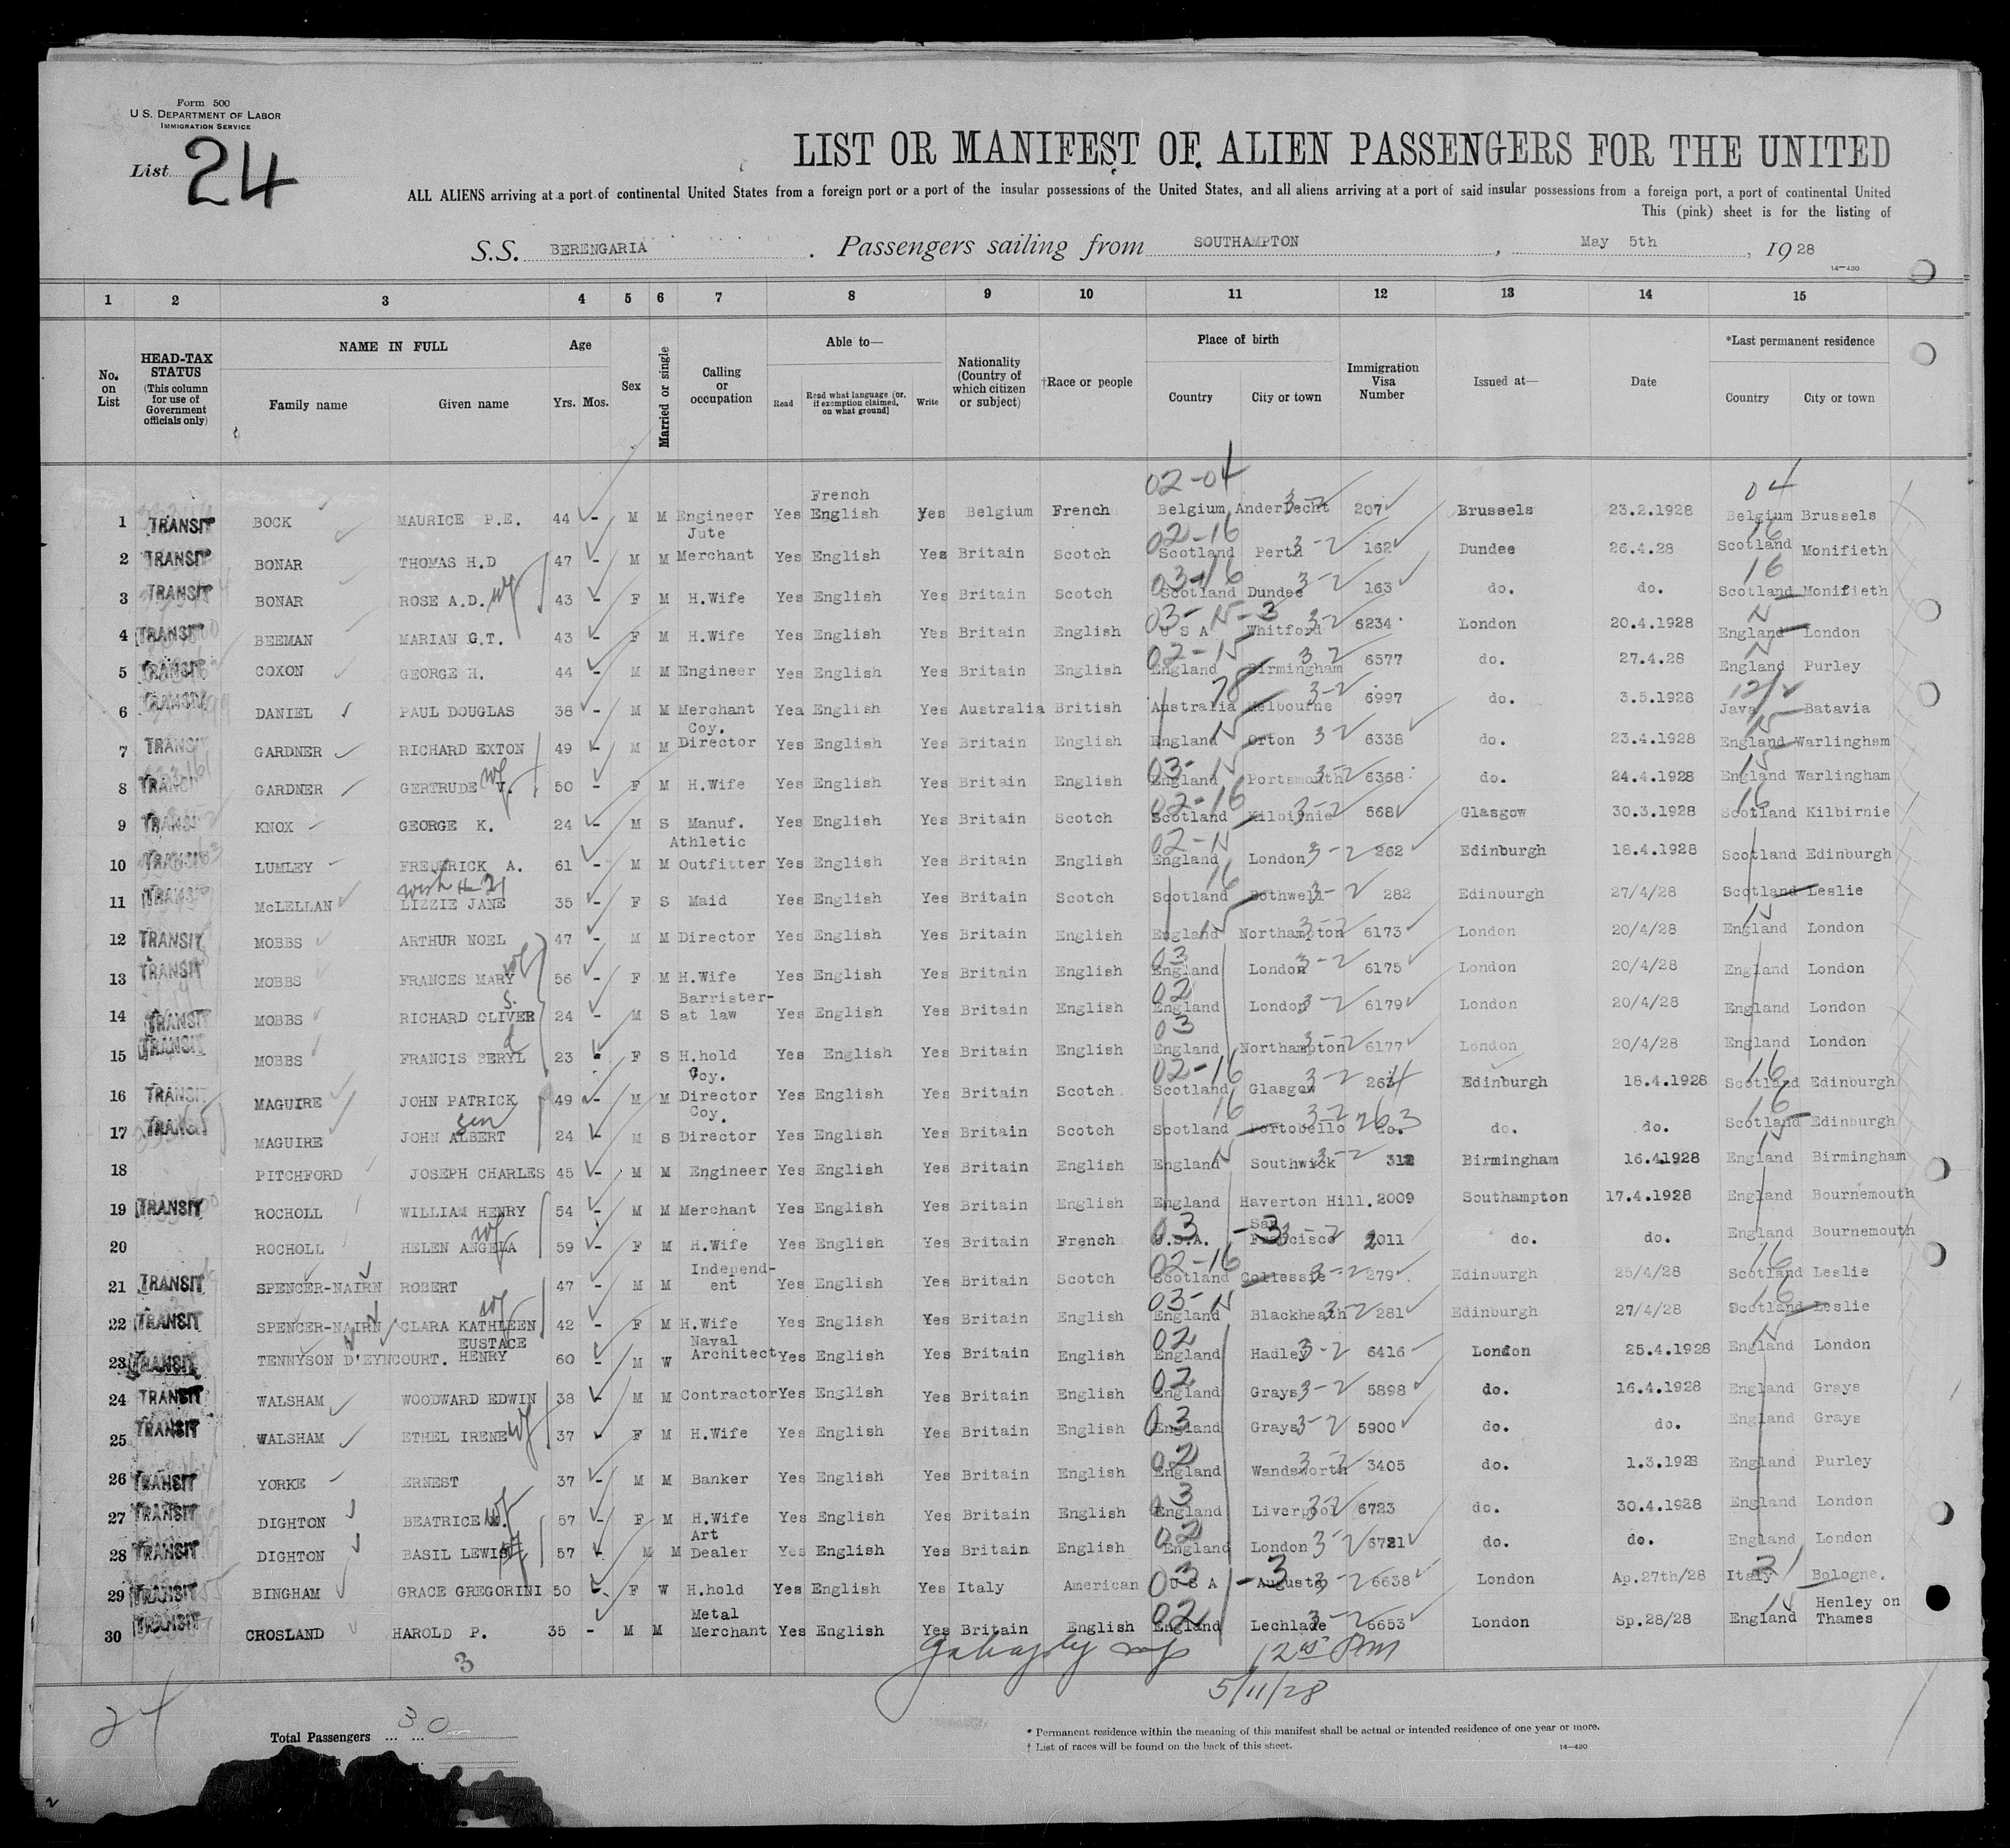 Form 500
U. S. DEPARTMENT OF LABOR
IMMIGRATION SERVICE
List 24
LIST OR MANIFEST OF ALIEN PASSENGERS FOR THE UNITED
ALL ALIENS arriving at a port of continental United States from a foreign port or a port of the insular possessions of the United States, and all aliens arriving at a port of said insular possessions from a foreign port, a port of continental United
This (pink) sheet is for the listing of
S.S. BERENGARIA. Passengers sailing from SOUTHAMPTON, May 5th, 1928
14—430
1 2 3 4 5 6 7 8 9 10 11 12 13 14 15
No. on List HEAD-TAX STATUS (This column for use of Government officials only) NAME IN FULL Family name Given name Age Yrs. Mos. Sex Married or single Calling or occupation Able to— Read Read what language (or, if exemption claimed, on what ground) Write Nationality (Country of which citizen or subject) †Race or people Place of birth Country City or town Immigration Visa Number Issued at— Date *Last permanent residence Country City or town
02-04 04
1 TRANSIT BOCK MAURICE P.E. 44 - M M Engineer Yes French English Yes Belgium French Belgium Anderlecht 3-2 207 Brussels 23.2.1928 Belgium Brussels
2 TRANSIT BONAR THOMAS H.D 47 - M M Jute Merchant Yes English Yes Britain Scotch 02-16 Scotland Perth 3-2 162 Dundee 26.4.28 16 Scotland Monifieth
3 TRANSIT BONAR ROSE A.D. wf 43 - F M H.Wife Yes English Yes Britain Scotch 03-16 Scotland Dundee 3-2 163 do. do. 16 Scotland Monifieth
4 TRANSIT BEEMAN MARIAN G.T. 43 - F M H.Wife Yes English Yes Britain English 03- N-3 U S A Whitford 3-2 6234 London 20.4.1928 N England London
5 TRANSIT COXON GEORGE H. 44 - M M Engineer Yes English Yes Britain English 02-N England Birmingham 3-2 6577 do. 27.4.28 N England Purley
6 TRANSIT DANIEL PAUL DOUGLAS 38 - M M Merchant Yea English Yes Australia British 78 Australia Melbourne 3-2 6997 do. 3.5.1928 Java Batavia
7 TRANSIT GARDNER RICHARD EXTON 49 - M M Coy. Director Yes English Yes Britain English England N Orton 3-2 6338 do. 23.4.1928 N England Warlingham
8 TRANSIT GARDNER GERTRUDE V. wf 50 - F M H.Wife Yes English Yes Britain English 03-N England Portsmouth 3-2 6368 do. 24.4.1928 N England Warlingham
9 TRANSIT KNOX GEORGE K. 24 - M S Manuf. Yes English Yes Britain Scotch 02-16 Scotland Kilbirnie 3-2 568 Glasgow 30.3.1928 16 Scotland Kilbirnie
10 TRANSIT LUMLEY FREDERICK A. 61 - M M Athletic Outfitter Yes English Yes Britain English 02-N England London 3-2 262 Edinburgh 18.4.1928 Scotland Edinburgh
11 TRANSIT McLELLAN LIZZIE JANE 35 - F S Maid Yes English Yes Britain Scotch 16 Scotland Bothwell 3-2 282 Edinburgh 27/4/28 Scotland Leslie
12 TRANSIT MOBBS ARTHUR NOEL 47 - M M Director Yes English Yes Britain English England N Northampton 3-2 6173 London 20/4/28 N England London
13 TRANSIT MOBBS FRANCES MARY wf 56 - F M H.Wife Yes English Yes Britain English 03 England London 3-2 6175 London 20/4/28 England London
14 TRANSIT MOBBS RICHARD CLIVER s. 24 - M S Barrister-at law Yes English Yes Britain English 02 England London 3-2 6179 London 20/4/28 England London
15 TRANSIT MOBBS FRANCIS BERYL d 23 F S H.hold Yes English Yes Britain English 03 England Northampton 3-2 6177 London 20/4/28 England London
16 TRANSIT MAGUIRE JOHN PATRICK 49 - M M Coy. Director Yes English Yes Britain Scotch 02-16 Scotland Glasgow 3-2 264 Edinburgh 18.4.1928 16 Scotland Edinburgh
17 TRANSIT MAGUIRE JOHN ALBERT 24 - M S Coy. Director Yes English Yes Britain Scotch 16 Scotland Portobello 3-2 263 do. do. do. 16 Scotland Edinburgh
18 PITCHFORD JOSEPH CHARLES 45 - M M Engineer Yes English Yes Britain English England N Southwick 3-2 312 Birmingham 16.41928 N England Birmingham
19 TRANSIT ROCHOLL WILLIAM HENRY 54 - M M Merchant Yes English Yes Britain English England Haverton Hill. 2009 Southampton 17.4.1928 England Bournemouth
20 ROCHOLL HELEN ANGELA wf 59 - F M H.Wife Yes English Yes Britain French 03 -3 U.S.A. San Francisco 2011 do. do. England Bournemouth
21 TRANSIT SPENCER-NAIRN ROBERT 47 - M M Independ-ent Yes English Yes Britain Scotch 02-16 Scotland Collessie 3-2 279 Edinburgh 25/4/28 16 Scotland Leslie
22 TRANSIT SPENCER-NAIRN CLARA KATHLEEN wf 42 - F M H.Wife Yes English Yes Britain English 03-N England Blackheath 3-2 281 Edinburgh 27/4/28 16 Scotland Leslie
23 TRANSIT TENNYSON D'EYNCOURT. EUSTACE HENRY 60 - M W Naval Architect Yes English Yes Britain English 02 England Hadley 3-2 6416 London 25.4.1928 N England London
24 TRANSIT WALSHAM WOODWARD EDWIN 38 - M M Contractor Yes English Yes Britain English 02 England Grays 3-2 5898 do. 16.4.1928 England Grays
25 TRANSIT WALSHAM ETHEL IRENE wf 37 - F M H.Wife Yes English Yes Britain English 03 England Grays 3-2 5900 do. do. England Grays
26 TRANSIT YORKE ERNEST 37 - M M Banker Yes English Yes Britain English 02 England Wandsworth 3-2 3405 do. 1.3.1928 England Purley
27 TRANSIT DIGHTON BEATRICE M. wf 57 - F M H.Wife Yes English Yes Britain English 03 England Liverpool 3-2 6723 do. 30.4.1928 England London
28 TRANSIT DIGHTON BASIL LEWIS 57 - M M Art Dealer Yes English Yes Britain English 02 England London 3-2 6721 do. do. England London
29 TRANSIT BINGHAM GRACE GREGORINI 50 - F W H.hold Yes English Yes Italy American 03 -3 U S A Augusta 3-2 6638 London Ap.27th/28 Italy Bologne.
30 TRANSIT CROSLAND HAROLD P. 35 - M M Metal Merchant Yes English Yes Britain English 02 England Lechlade 3-2 6653 London Sp.28/28 N England Henley on Thames
3
5/11/28
24
Total Passengers ... ... 30
* Permanent residence within the meaning of this manifest shall be actual or intended residence of one year or more.
† List of races will be found on the back of this sheet.
14—430